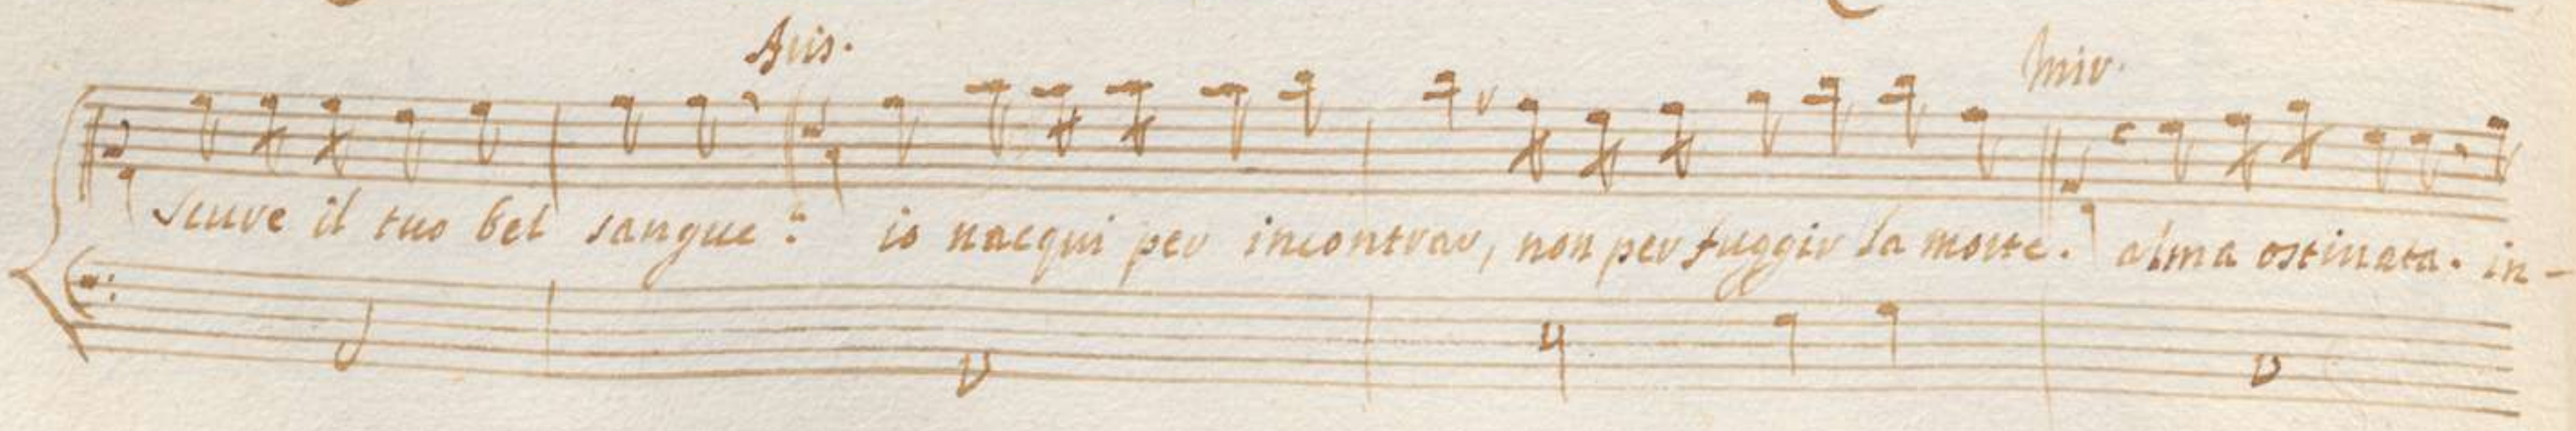 Aris. Mir.
scure il tuo bel sangue? io nacqui per incontrar, non per fuggir la morte. alma ostinata. in-